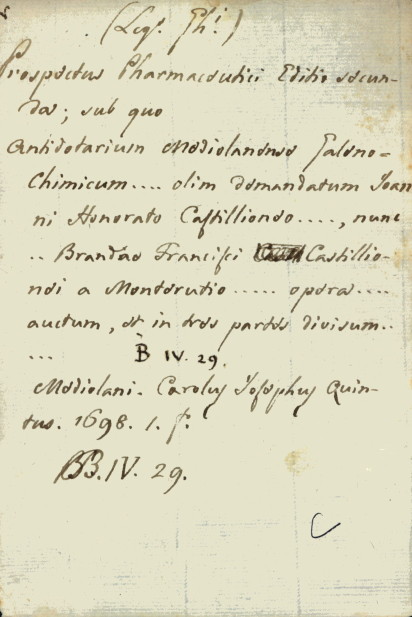 (Legs. Ghi.)
Prospectus Pharmaceutici Editio secun-
da; sub quo
Antidotarium Mediolanense Galeno-
Chimicum.... olim demandatum Joan
ni Honorato Castillioneo...., nunc
.. Brandae Francisci Castillio-
nei a Monterutio ..... opera ....
auctum, et in tres partes divisum..
... B IV. 29.
Mediolani. Carolus Josephus Quin-
tus. 1698. 1. f.
BB. IV. 29.
C